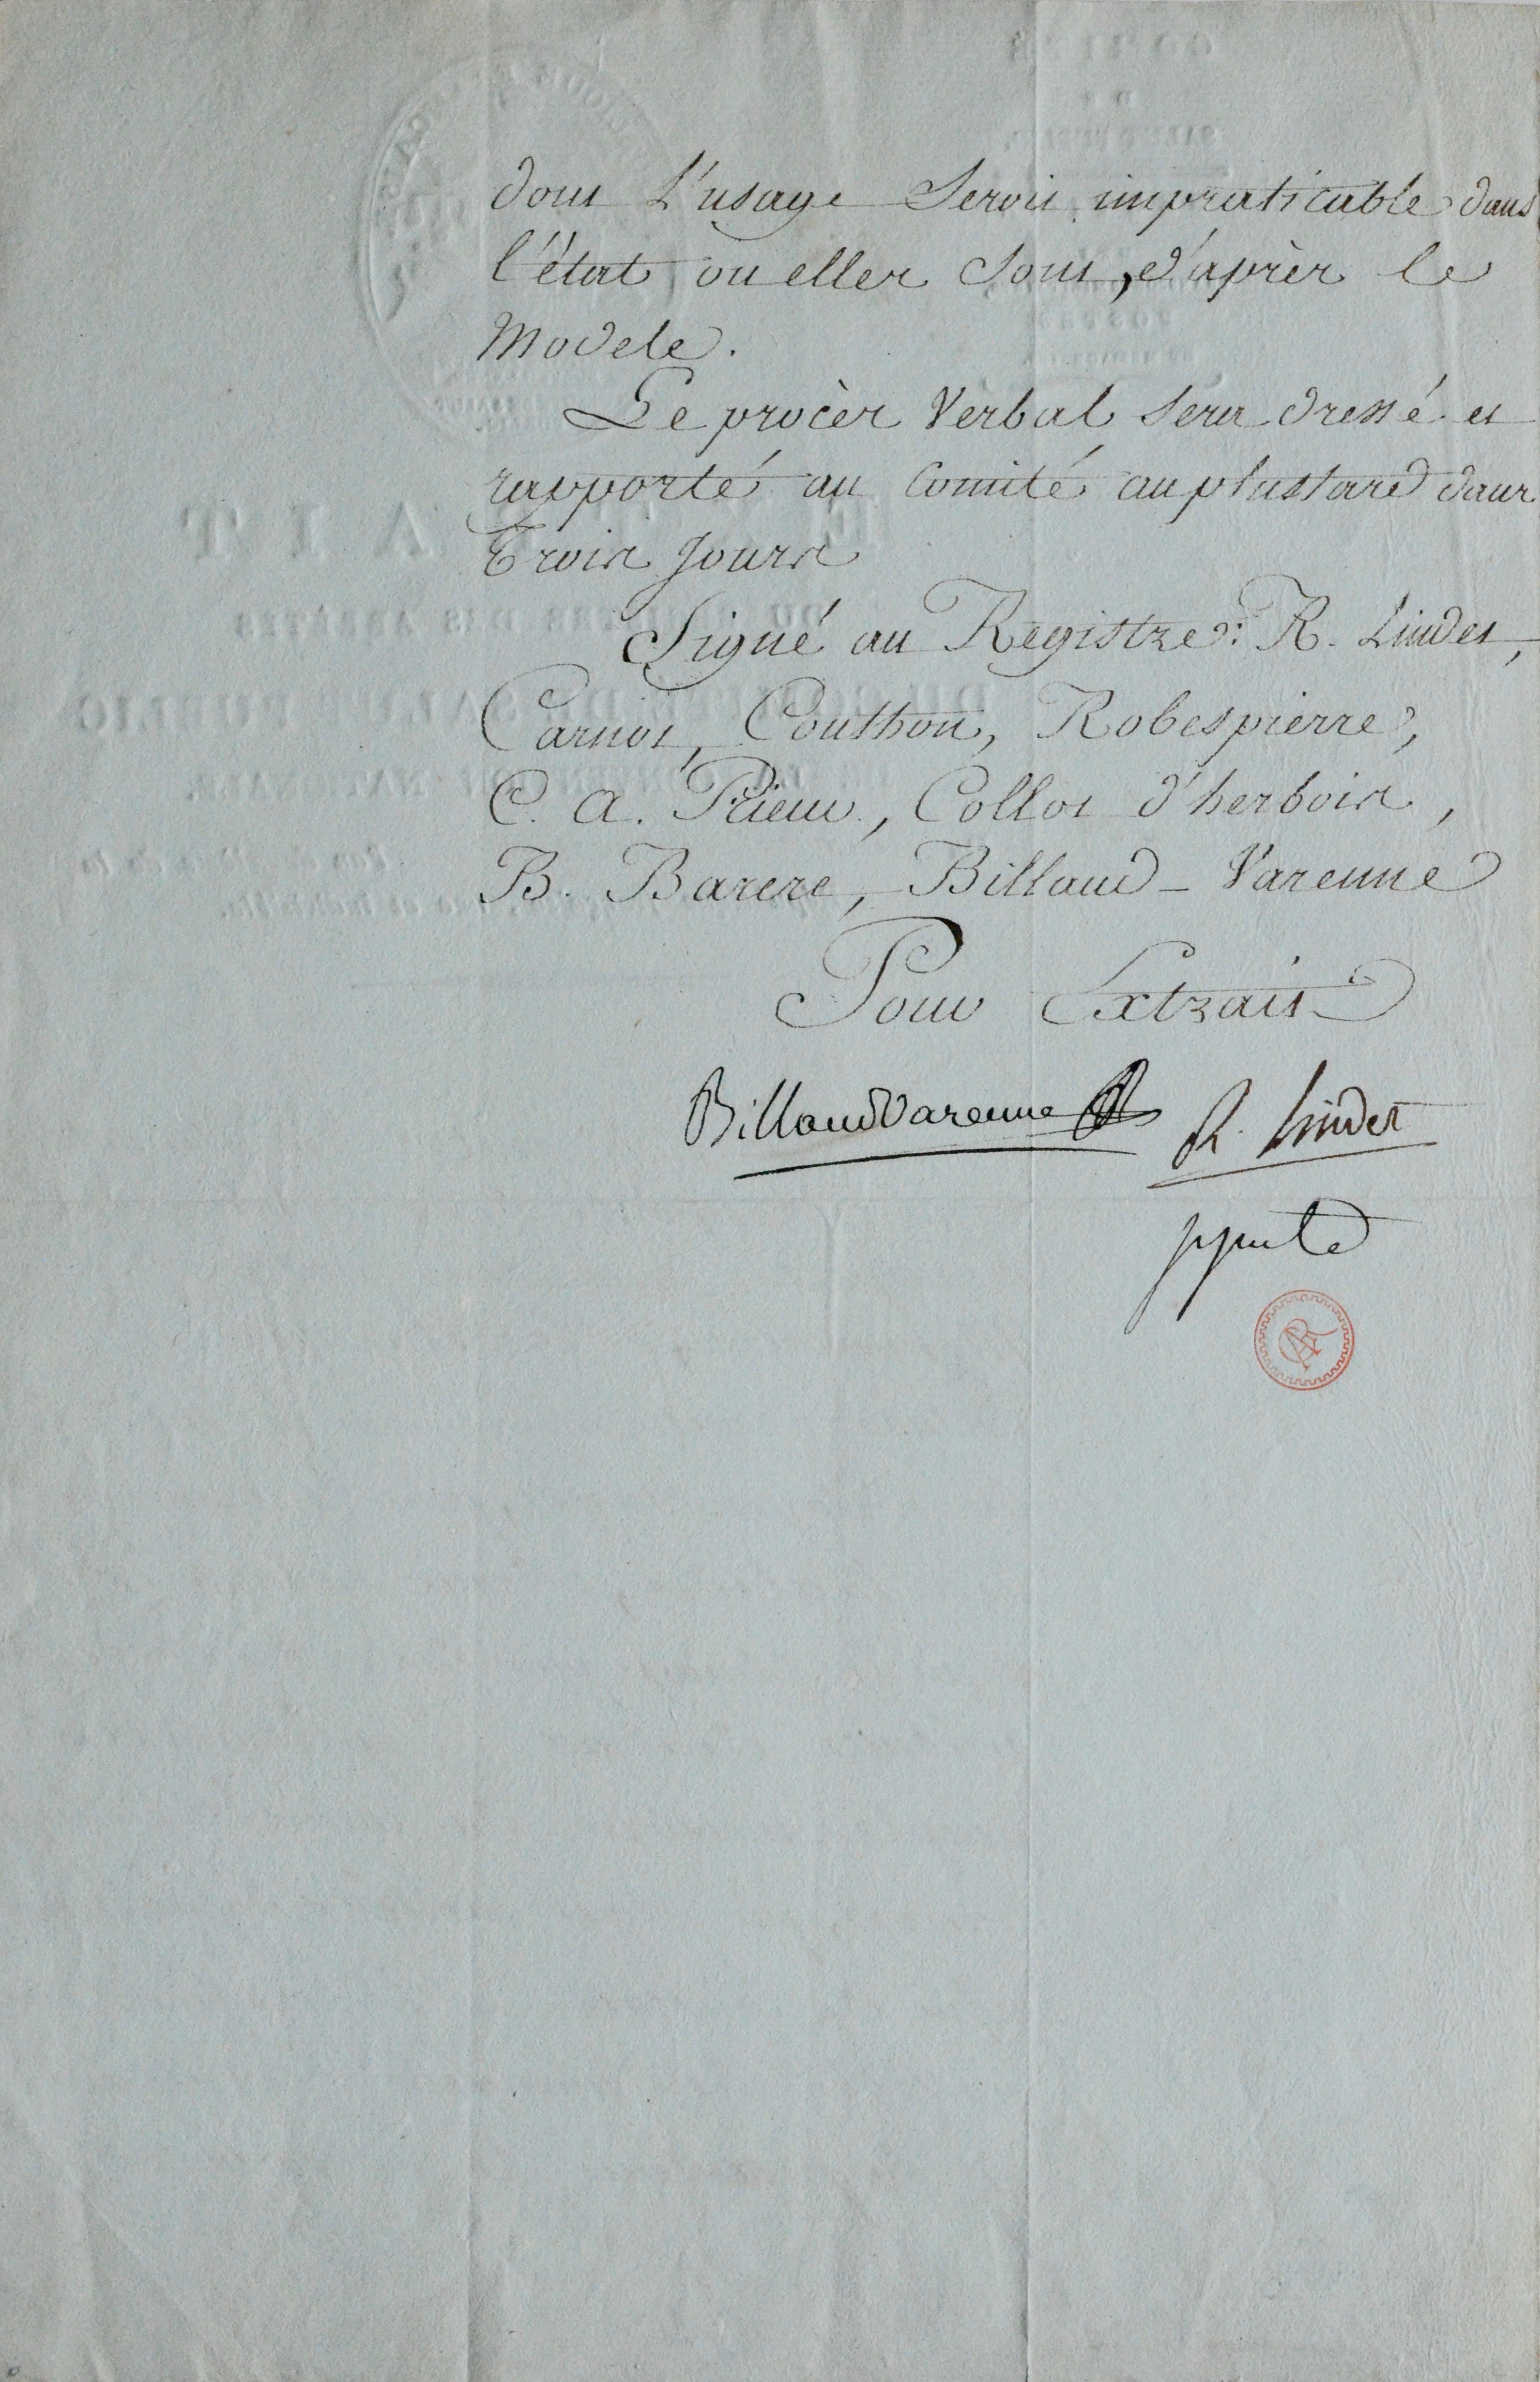 dont L'usage Seroit impraticable dans
l'état ou elles sont, d'après le
Modele.
Le procès Verbal sera dressé et
rapporté au Comité au plustard dans
Trois Jours
Signé au Registre: R. Lindet,
Carnot, Couthon, Robespierre,
C. A. Prieur, Collot d'herbois,
B. Barere, Billaud-Varenne
Pour Extrait
BillaudVarenne R. Lindet